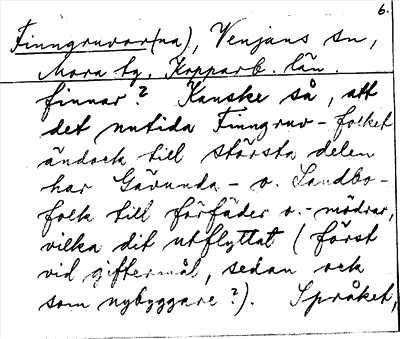 6.
Finngruvor(na), Venjans sn,
Mora tg. Kopparb. län.
finnar? Kanske så, att
det nutida Finngruv-folket
ändock till största delen
har Gävunda- o. Landbo-
folk till förfäder o.-mödrar,
vilka dit utflyttat (först
vid giftermål, sedan ock
som nybyggare?). Språket,